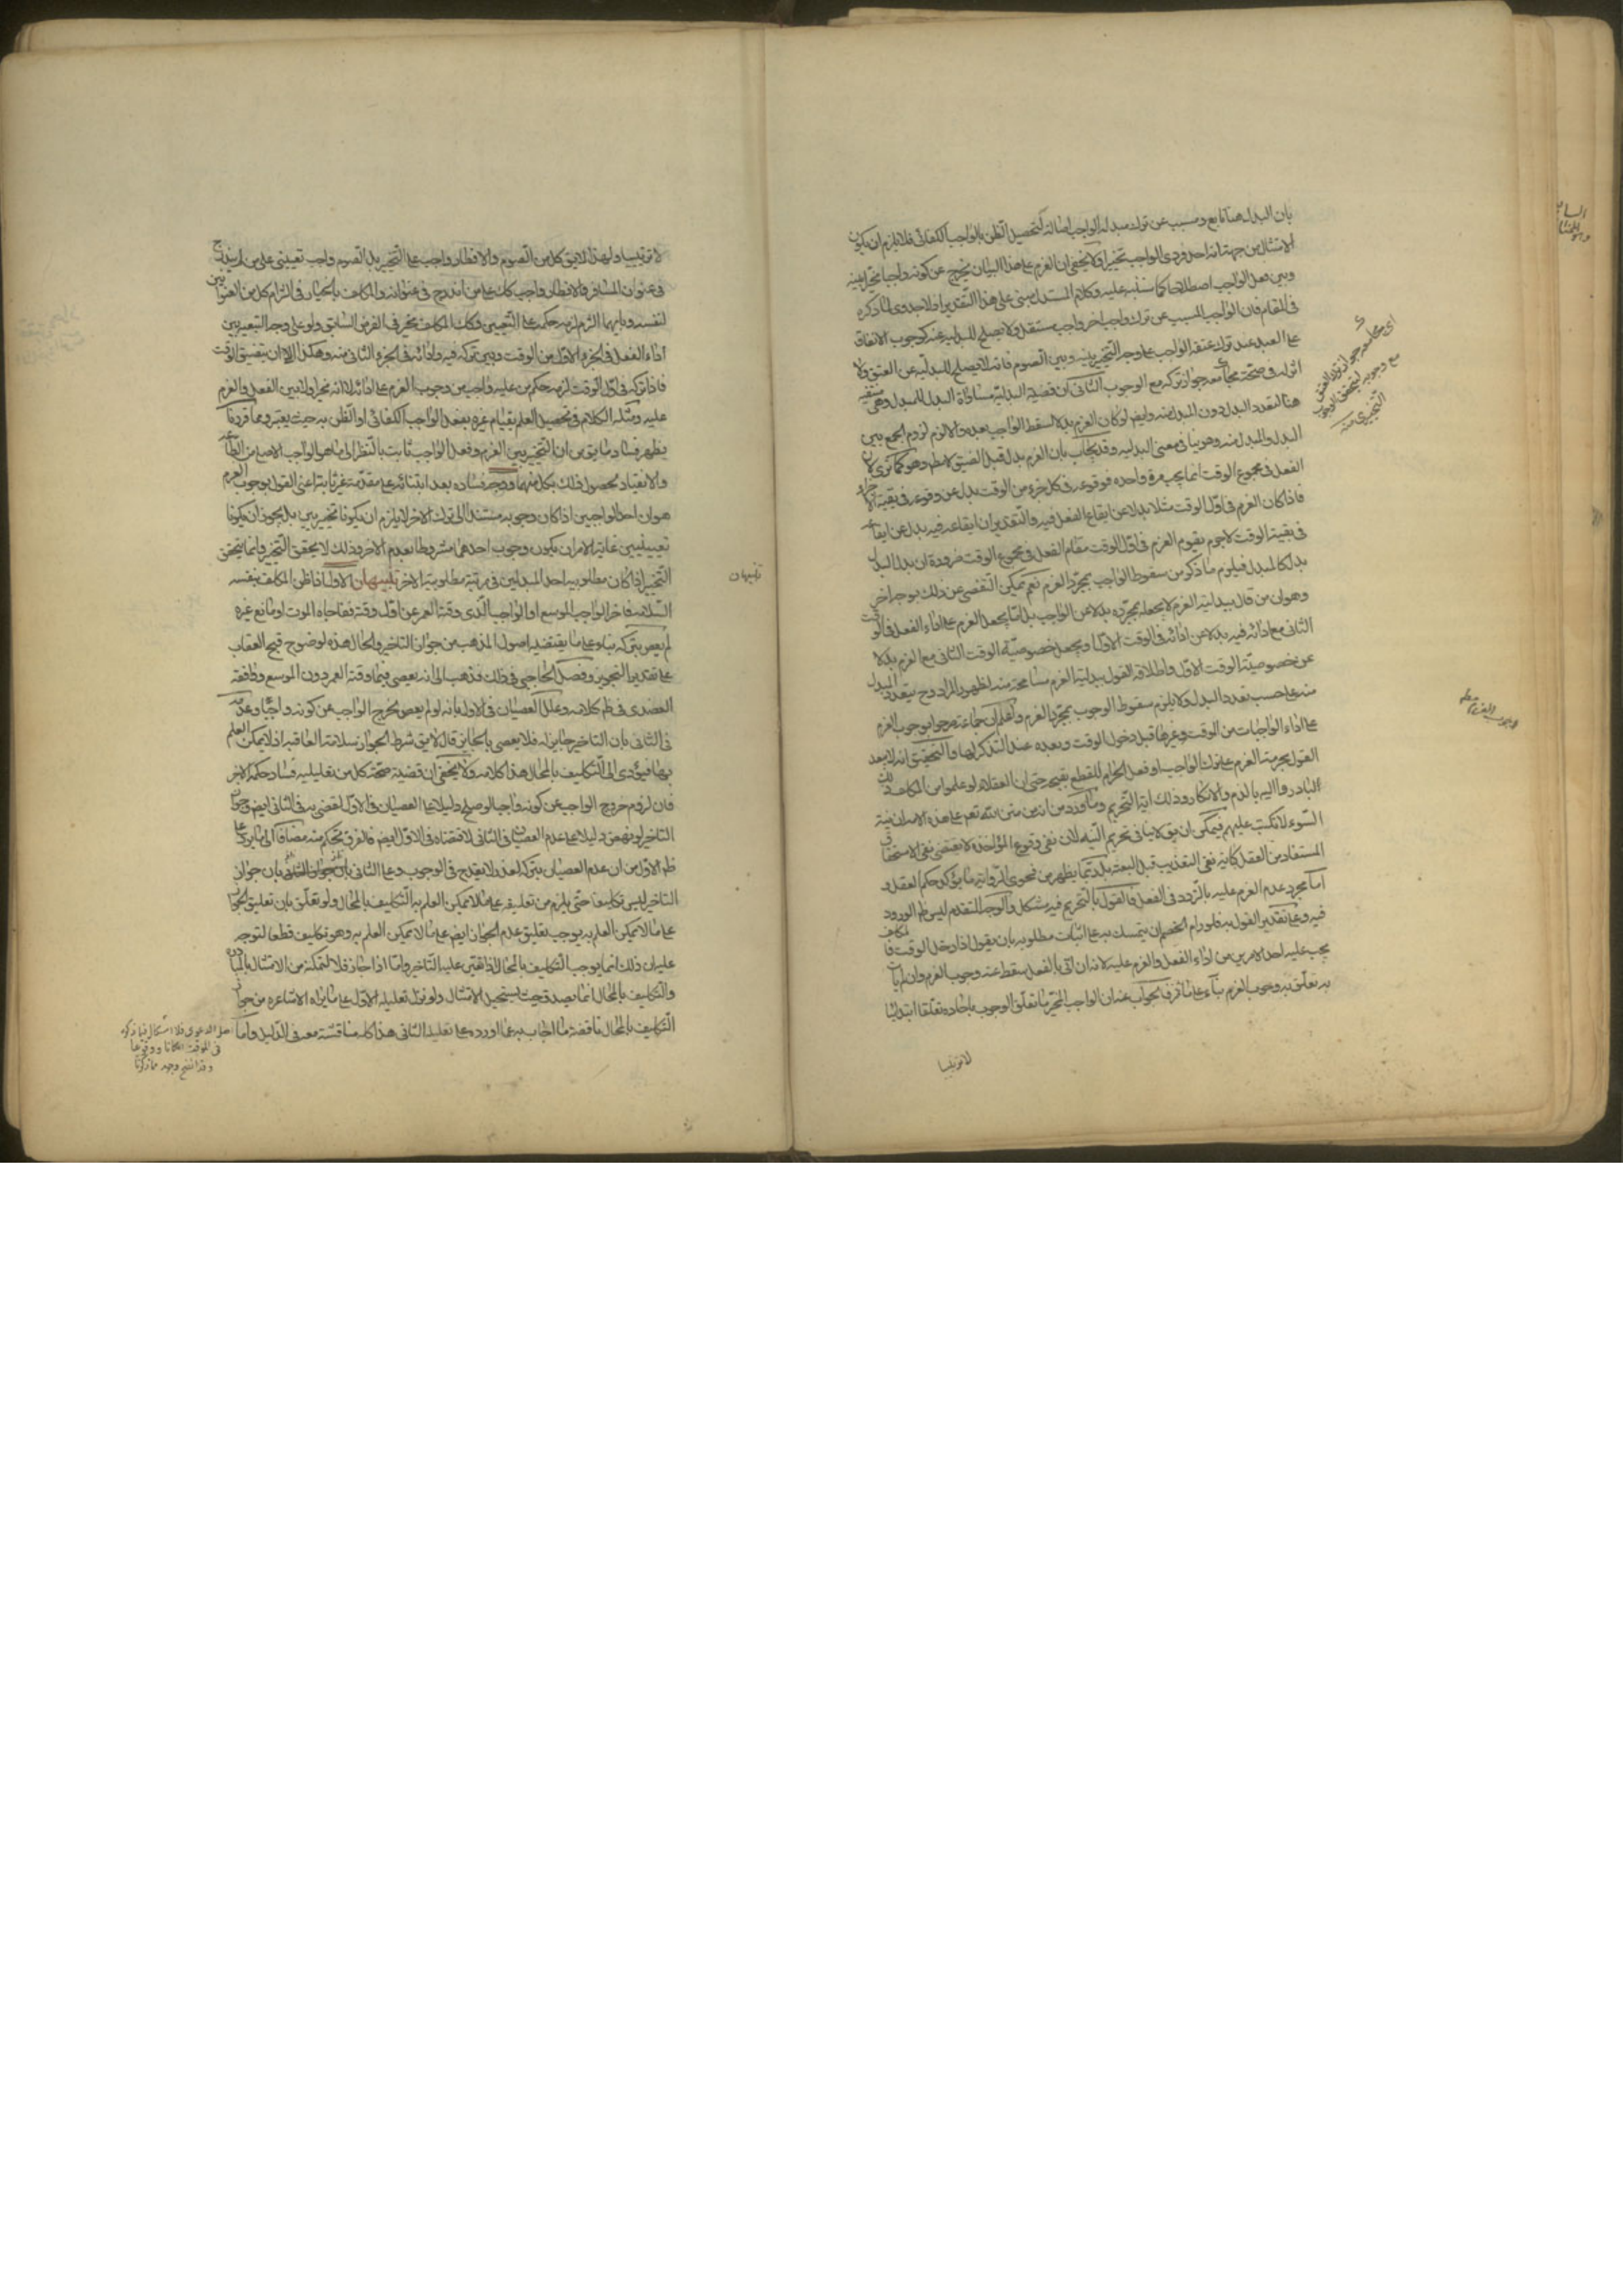 بان البدل هنا تابع ومسبب عن ترك مبدله الواجب اصالة كتحصيل الظن بالواجب الكفائى فلا يلزم ان يكون
الامتثال من جهة انه احد فردى الواجب تخييرا ولا يخفى ان العزم على هذا البيان يخرج عن كونه واجبا تخييرا بينه
وبين فعل الواجب اصطلاحا كما سننبه عليه وكلام المستدل مبنى على هذا التقدير اذ لا جدوى لما ذكره
فى المقام فان الواجب المسبب عن ترك واجب اخر واجب مستقل ولا يصلح للبدلية عنه كوجوب الانفاق
على العبد عند ترك عتقه الواجب على وجه التخيير بينه وبين الصوم فانه لا يصلح للبدلية عن العتق ولا
اثر له فى صحة مجامعه جواز تركه مع الوجوب الثانى ان قضية البدلية مساواة البدل للمبدل وهى منتفية
هنا لتعدد البدل دون المبدل منه وايض لو كان العزم بدلا لسقط الواجب بعده والا لزم لزوم الجمع بين
البدل والمبدل منه وهو ينافى معنى البدليه وقد يجاب بان العزم بدل قبل الضيق لا مطم وهو كما ترى لان
الفعل فى مجموع الوقت انما يجب مرة واحده فوقوعه فى كل جزء من الوقت بدل عن وقوعه فى بقية الاجزاء
فاذا كان العزم فى اول الوقت مثلا بدلا عن ايقاع الفعل فيه والتقدير ان ايقاعه فيه بدل عن ايقاعه
فى بقية الوقت لا جرم يقوم العزم فى اول الوقت مقام الفعل فى مجموع الوقت ضرورة ان بدل البدل
بدل كالمبدل فيلزم ما ذكر من سقوط الواجب بمجرد العزم نعم يمكن التفصى عن ذلك بوجه اخر
وهو ان من قال ببدلية العزم لا يجعله بمجرده بدلا عن الواجب بل انما يجعل العزم على اداء الفعل فى الوقت
الثانى مع ادائه فيه بدلا عن ادائه فى الوقت الاول او يجعل خصوصية الوقت الثانى مع العزم بدلا
عن خصوصية الوقت الاول واطلاقه القول ببدلية العزم مسامحة منه لظهور المراد وح يتعدد البدل
منه على حسب تعدد البدل ولا يلزم سقوط الوجوب بمجرد العزم واعلم ان جماعة صرحوا بوجوب العزم
على اداء الواجبات من الوقت وغيرها قبل دخول الوقت وبعده عند التذكر لها والتحقيق انه لا يبعد
القول بحرمة العزم على ترك الواجب او فعل الحرام للقطع بقبحه حتى ان العقلاء لو علموا من المكلف ذلك
لبادروا اليه بالذم والانكار وذلك اية التحريم وما ورد من ان من منن الله تعم على هذه الامه ان نية
السوء لا تكتب عليهم فيمكن ان يق لا ينافى تحريم النيه لان نفى وقوع المؤاخذة لا يقتضى نفى الاستحقاق
المستفاد من العقل كاية نفى التعذيب قبل البعثة بل ربما يظهر من فحوى الرواية ما يؤكد حكم العقل و
اما مجرد عدم العزم عليه بالتردد فى الفعل فالقول بالتحريم فيه مشكل والوجه المتقدم ليس ظم الورود
فيه وعلى تقدير القول به فلو رام الخصم ان يتمسك به على اثبات مطلوبه بان يقول اذا دخل الوقت فالمكلف
يجب عليه احد الامرين من اداء الفعل والعزم عليه لانه ان اتى بالفعل سقط عنه وجوب العزم وان لم يات
به تعلق به وجوب العزم بناء على ما قر فالجواب عنه ان الواجب المخير ما تعلق الوجوب باحاده تعلقا ابتدائيا
لا ترتيبيا
اى مجامعه جواز ترك العتق
مع وجوبه لتحقق الوجوب
التخييرى منه
لا ترتيبيا ولهذا لا يق كل من الصوم والافطار واجب على التخيير بل الصوم واجب تعيينى على من لم يندرج
فى عنوان المسافر والافطار واجب كك على من اندرج فى عنوانه والمكلف بالخيار فى الزام كل من العنوانين
لنفسه وبايهما التزم لزمه حكمه على التعيين فكك المكلف مخير فى الفرض السابق ولو على وجه التبعيه بين
اداء الفعل فى الجزء الاول من الوقت وبين تركه فيه وادائه فى الجزء الثانى منه وهكذا الا ان يتضيق الوقت
فاذا تركه فى اول الوقت لزمه حكم من عليه واجب من وجوب العزم على ادائه لا انه مخير اولا بين الفعل والعزم
عليه ومثله الكلام فى تحصيل العلم بقيام غيره بفعل الواجب الكفائى او الظن به حيث يعتبر ومما قررنا
يظهر فساد ما يق من ان التخيير بين العزم وفعل الواجب ثابت بالنظر الى ما هو الواجب الاصلى من الطاعة
والانقياد لحصول ذلك بكل منهما ووجه فساده بعد ابتنائه على مقدمة غير ثابتة اعنى القول بوجوب العزم
هو ان احد الواجبين اذا كان وجوبه مستندا الى ترك الاخر لا يلزم ان يكونا تخييريين بل يجوز ان يكونا
تعيينيين غاية الامر ان يكون وجوب احدهما مشروطا بعدم الاخر وذلك لا يحقق التخيير وانما يتحقق
التخيير اذا كان مطلوبيه احد المبدلين فى مرتبة مطلوبية الاخر تنبيهان الاول اذا ظن المكلف بنفسه
السلامه فاخر الواجب الموسع او الواجب الذى وقته العمر عن اول وقته ففاجاه الموت او مانع غيره
لم يعص بتركه بناء على ما يقتضيه اصول المذهب من جواز التاخير والحال هذه لوضوح قبح العقاب
على تقدير التجويز وفصل الحاجبى فى ذلك فذهب الى انه يعصى فيما وقته العمر دون الموسع ووافقه
العضدى فى ظم كلامه وعلل العصيان فى الاول بانه لو لم يعص لخرج الواجب عن كونه واجبا وعدمه
فى الثانى بان التاخير جايز له فلا يعصى بالجايز قال لا يق شرط الجواز سلامة العاقبه اذ لا يمكن العلم
بها فيؤدى الى التكليف بالمحال هذا كلامه ولا يخفى ان قضية صحة كل من تعليليه فساد حكمه الاخر
فان لزوم خروج الواجب عن كونه واجبا لو صلح دليلا على العصيان فى الاول لقضى به فى الثانى ايض وجواز
التاخير لو نهض دليلا على عدم العصيان فى الثانى لاقتضاه فى الاول ايض فالفرق تحكم منه مضافا الى ما يرد على
ظم الاول من ان عدم العصيان بتركه لعذر لا يقدح فى الوجوب وعلى الثانى بان جواز
التاخير ليس تكليفا حتى يلزم من تعليقه على ما لا يمكن العلم به التكليف بالمحال ولو تعلق بان تعليق الجواز
على ما لا يمكن العلم به يوجب تعليق عدم الجواز ايض على ما لا يمكن العلم به وهو تكليف قطعا لتوجه
عليه ان ذلك انما يوجب التكليف بالمحال اذا تعين عليه التاخير واما اذا جاز فلا لتمكنه من الامتثال بالمبادرة
والتكليف بالمحال انما يصدق حيث يستحيل الامتثال ولو نزل تعليله الاول على ما يراه الاشاعره من جواز
التكليف بالمحال ناقضه ما اجاب به عما اورده على تعليله الثانى هذا كله مناقشة معه فى الدليل واما
اصل الدعوى فلا اشكال فيما ذكره
فى الموقت امكانا ووقوعا
وقد اتضح وجهه مما ذكرنا
تنبيهان